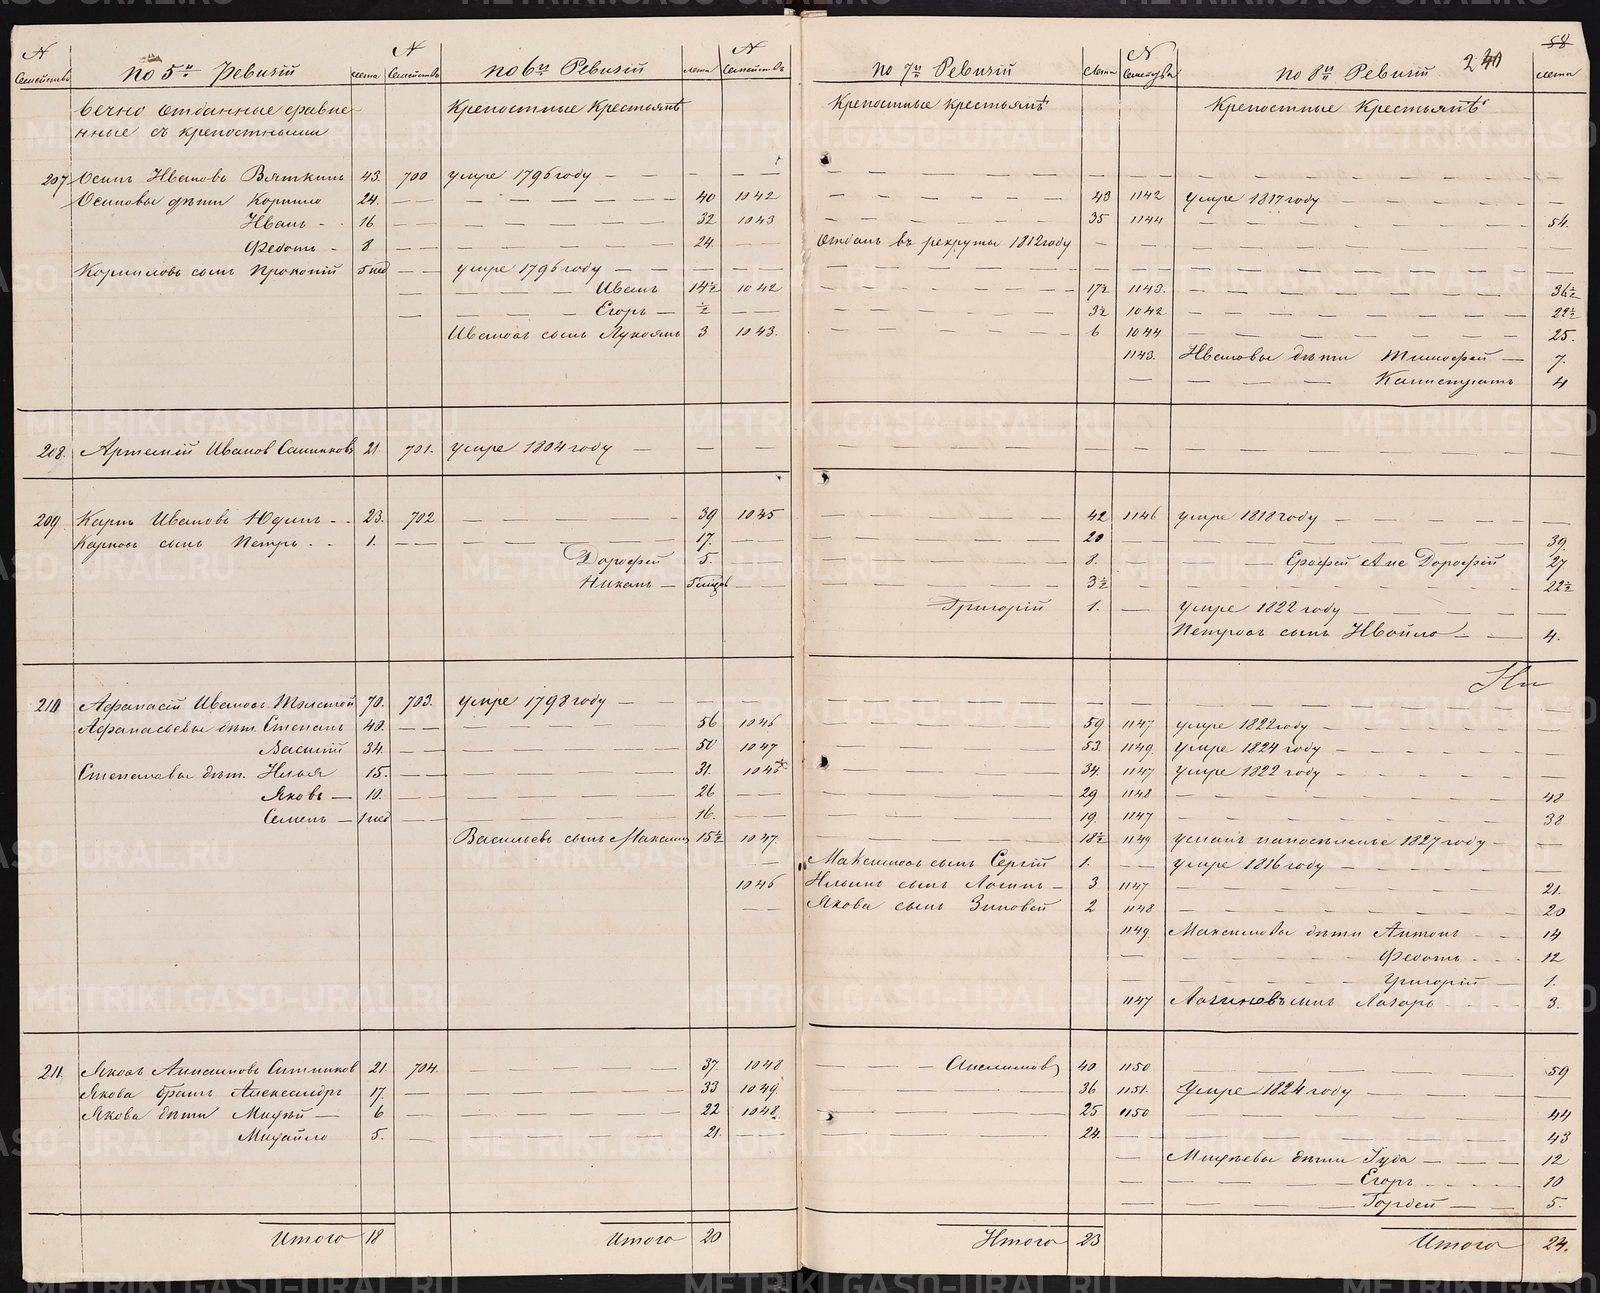 N Семействъ По 5й Ревизіи лета N Семействъ По 6й Ревизіи лета N Семействъ По 7й Ревизіи Лета N Семейства По 8й Ревизіи 240 58 лета
Вечно отданные сравне- Крепостные Крестьянѣ Крепостные крестьянѣ Крепостные Крестьянѣ
нные съ крепостными
207 Осипъ Ивановъ Вяткинъ 43. 700 умре 1796 году
Осиповы дѣти Корнило 24. 40 1042 43 1142 Умре 1817 году
Иванъ 16 32 1043 35 1144 54.
Федотъ 8 24. Отданъ въ рекруты 1812 году
Корниловъ сынъ Прокопій 5 нед умре 1796 году
Иванъ 14½ 1042 17½ 1143. 36½
Егоръ ½ 3½ 1042 22½
Ивановъ сынъ Лукоянъ 3 1043. 6 1044 25.
1143. Ивановы дѣти Тимофей 7.
Калистратъ 4
208. Артемій Иванов Санников 21. 701. умре 1804 году
209 Карпъ Ивановъ Юдинъ 23. 702 39 1045 42 1146 умре 1818 году
Карповъ сынъ Петръ 1. 17. 20 39.
Дорофей 5. 8. Ерофей Ане Дорофій 27
Никонъ 3½ 22½
Григорій 1. Умре 1822 году
Петровъ сынъ Ивойло 4.
210 Афанасій Ивановъ Толстой 70. 703. умре 1798 году
Афанасьевы дѣт. Степанъ 40. 56 1046 59 1147 умре 1822 году
Василій 34. 50 1047 53. 1149. Умре 1824 году
Степановы дѣт. Илья 15. 31. 1046 34. 1147 Умре 1822 году
Яковъ 10. 26 29 1148 48
Семенъ 1 нед 16. 19. 1147 38
Васильевъ сынъ Максимъ 15½ 1047. 18½ 1149 1827 году
Максимовъ сынъ Сергій 1. умре 1816 году
1046 Ильинъ сынъ Логинъ 3 1147 21.
Якова сынъ Зиновей 2 1148 20
1149. Максимовы дѣти Антонъ 14
Федотъ 12
Григорій 1.
1147 Логиновъ сынъ Лазарь 3.
211. Яковъ Анисимовъ Ситников 21. 704. 37. 1048 Анисимовъ 40 1150 59
Якова братъ Александръ 17. 33 1049. 36 1151. Умре 1824 году
Якова дѣти Михѣй 6 22 1048. 25 1150 44
Михайло 5. 21. 24. 43
Михѣевы дѣти Гуда 12
Егоръ 10
Гордей 5.
Итого 18 Итого 20 Итого 23 Итого 24.
METRIKI.GASO-URAL.RU